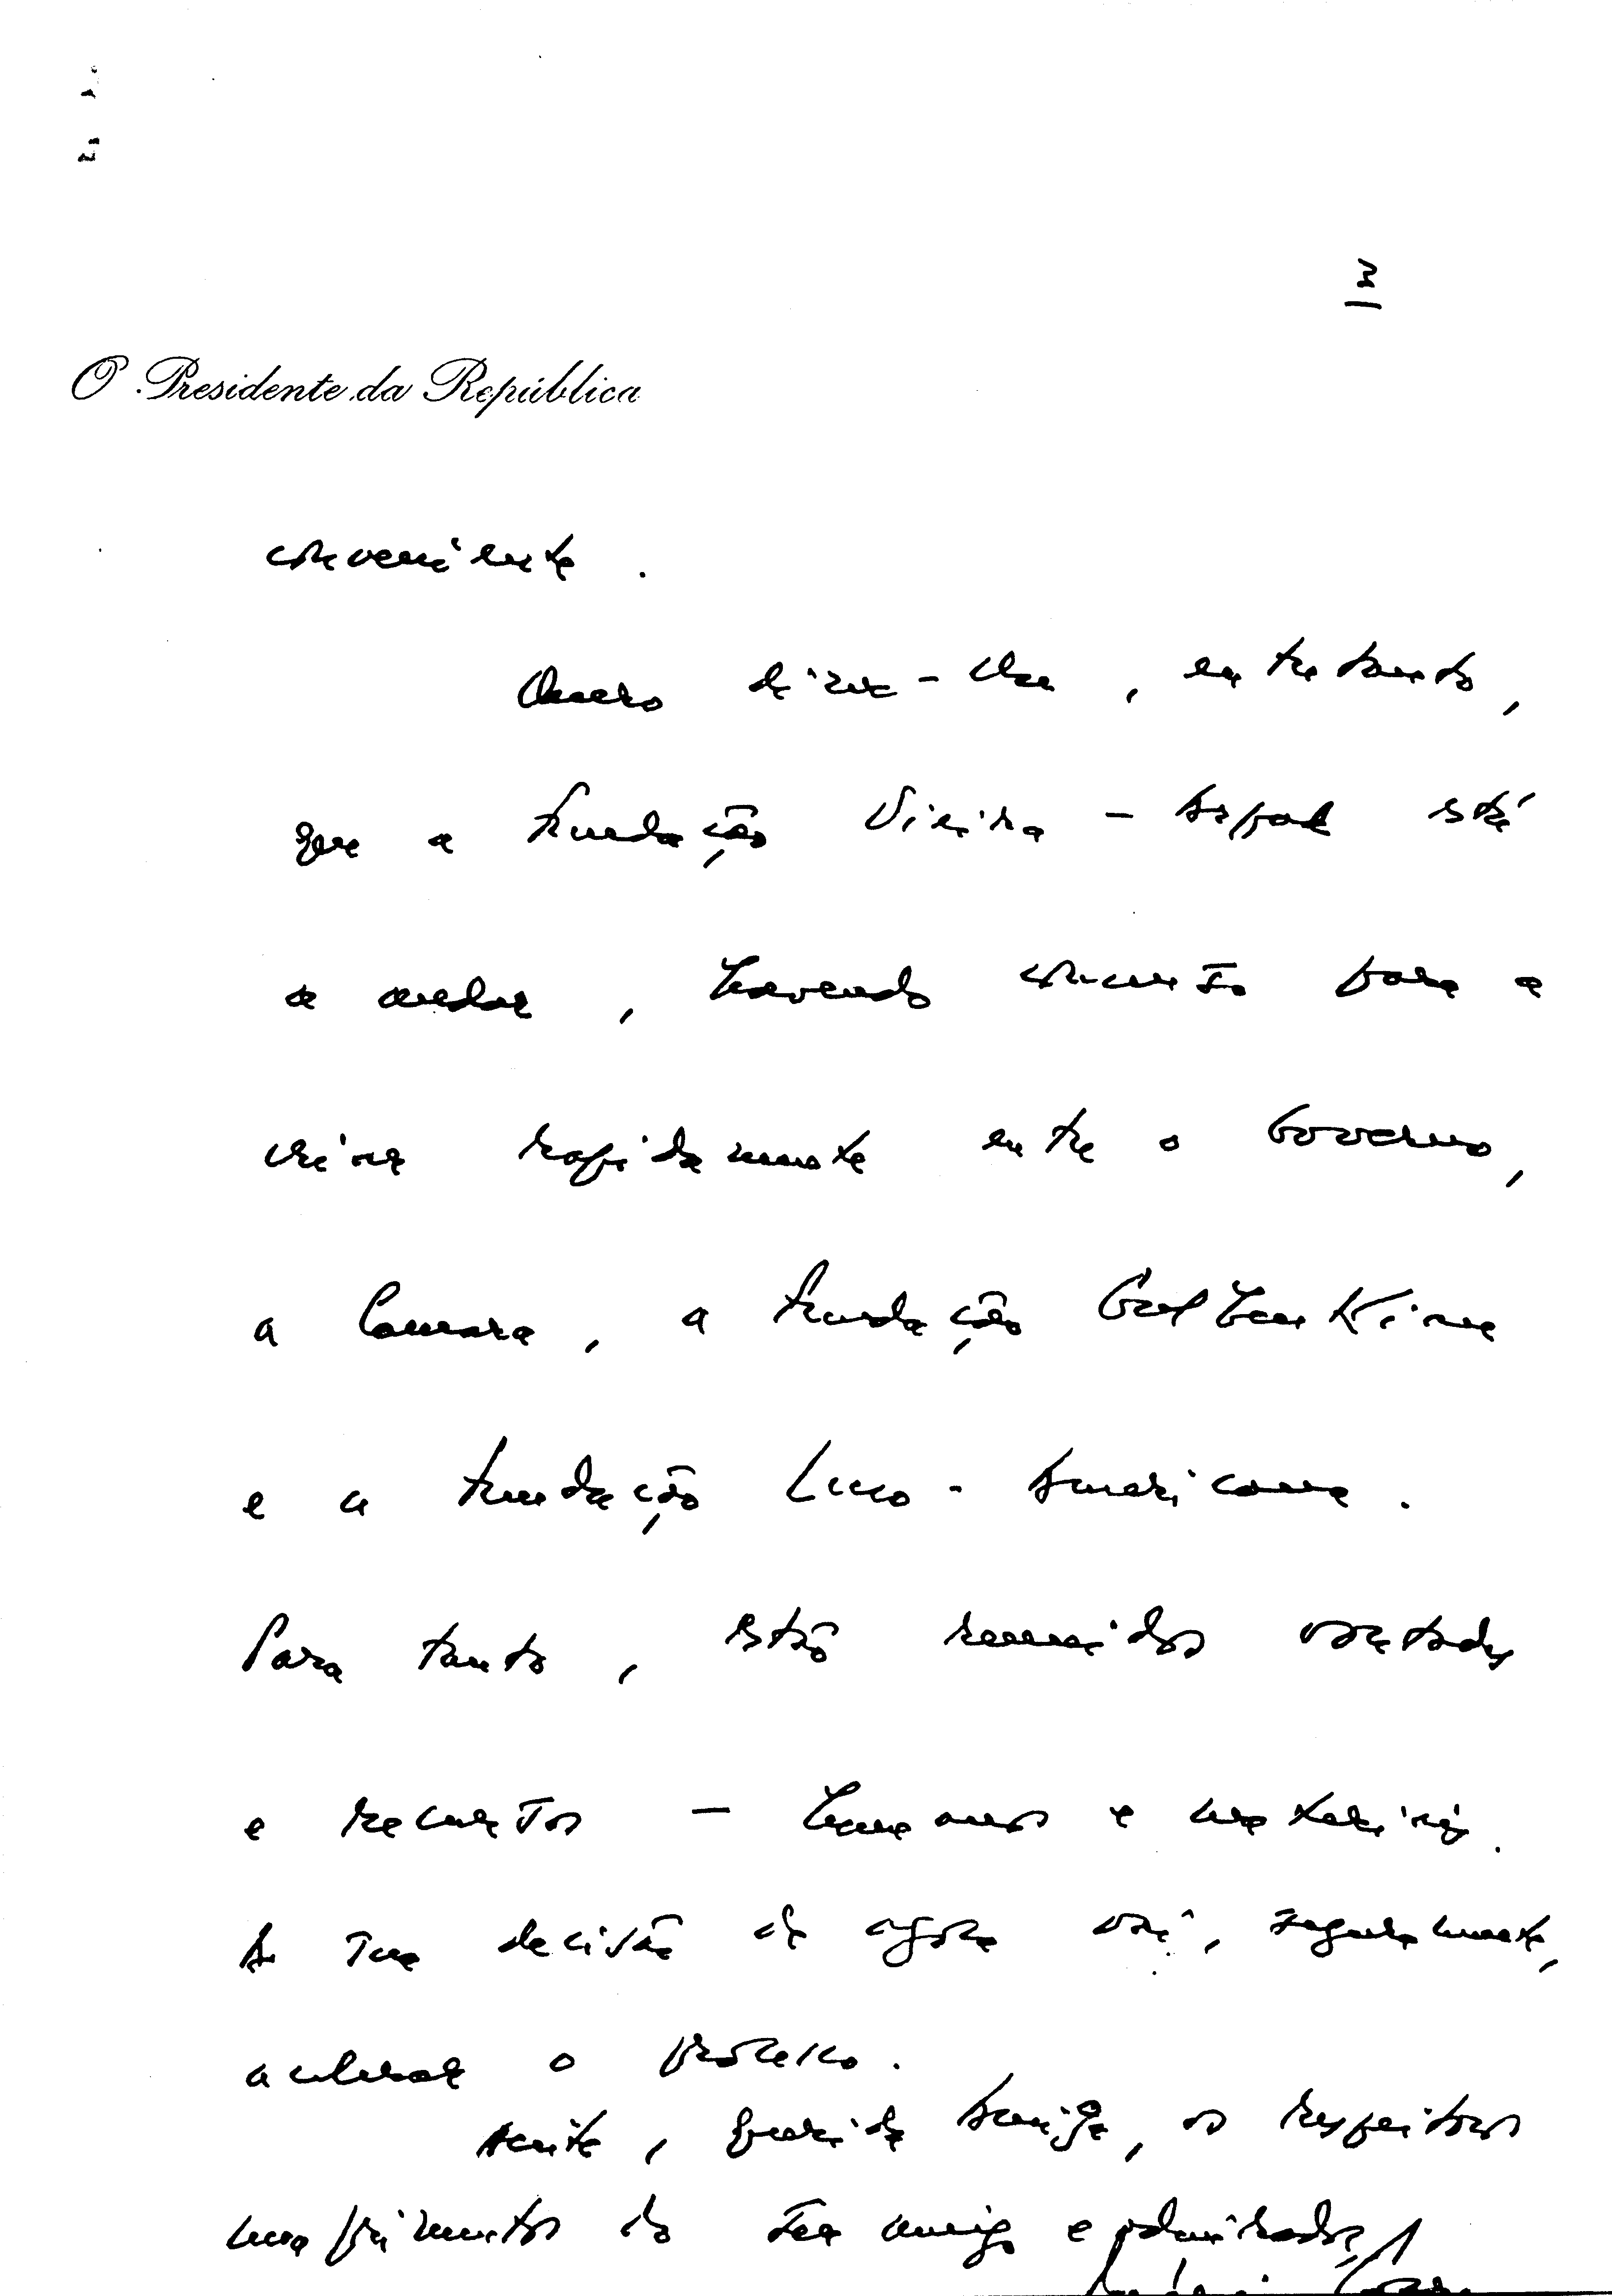 3
O Presidente da República
conveniente.
Quero dizer-lhe, entretanto,
que a Fundação Vieira - Arpad está
a andar, havendo consenso para a
criar rapidamente entre o Governo,
a Camara, a Fundação Gulbenkian
e a Fundação Luso-Americana.
Para tanto, estão reunidos vontades
e recursos – humanos e materiais.
A sua decisão de agora vai, seguramente,
acelerar o processo.
Aceite, querida Amiga, os respeitosos
cumprimentos do seu amigo e admirador,